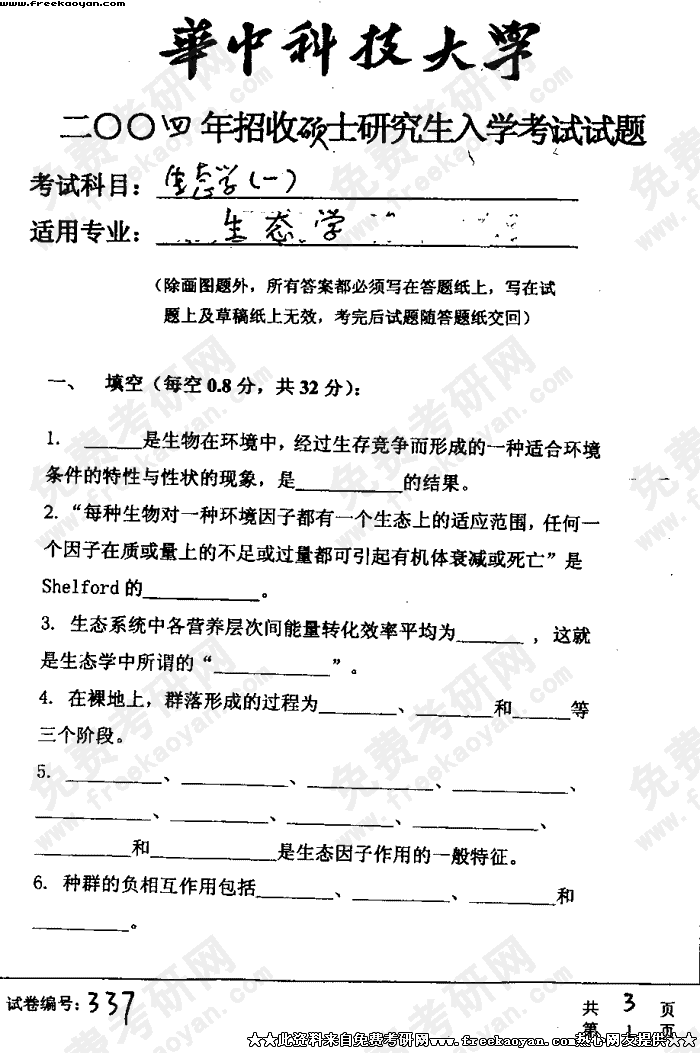 www.freekaoyan.com
華中科技大学
二〇〇四年招收硕士研究生入学考试试题
考试科目：生态学(一)
适用专业：生态学
（除画图题外，所有答案都必须写在答题纸上，写在试
题上及草稿纸上无效，考完后试题随答题纸交回）
一、 填空（每空0.8分，共32分）：
1. ______是生物在环境中，经过生存竞争而形成的一种适合环境
条件的特性与性状的现象，是__________的结果。
2. “每种生物对一种环境因子都有一个生态上的适应范围，任何一
个因子在质或量上的不足或过量都可引起有机体衰减或死亡”是
Shelford的___________。
3. 生态系统中各营养层次间能量转化效率平均为_______，这就
是生态学中所谓的“___________”。
4. 在裸地上，群落形成的过程为________、________和______等
三个阶段。
5. __________、___________、____________、____________、
____________、__________、___________、_____________、
__________和_____________是生态因子作用的一般特征。
6. 种群的负相互作用包括________、________、________和
__________。
试卷编号：337
共 3 页
第 1 页
★★此资料来自免费考研网www.freekaoyan.com热心网友提供★★